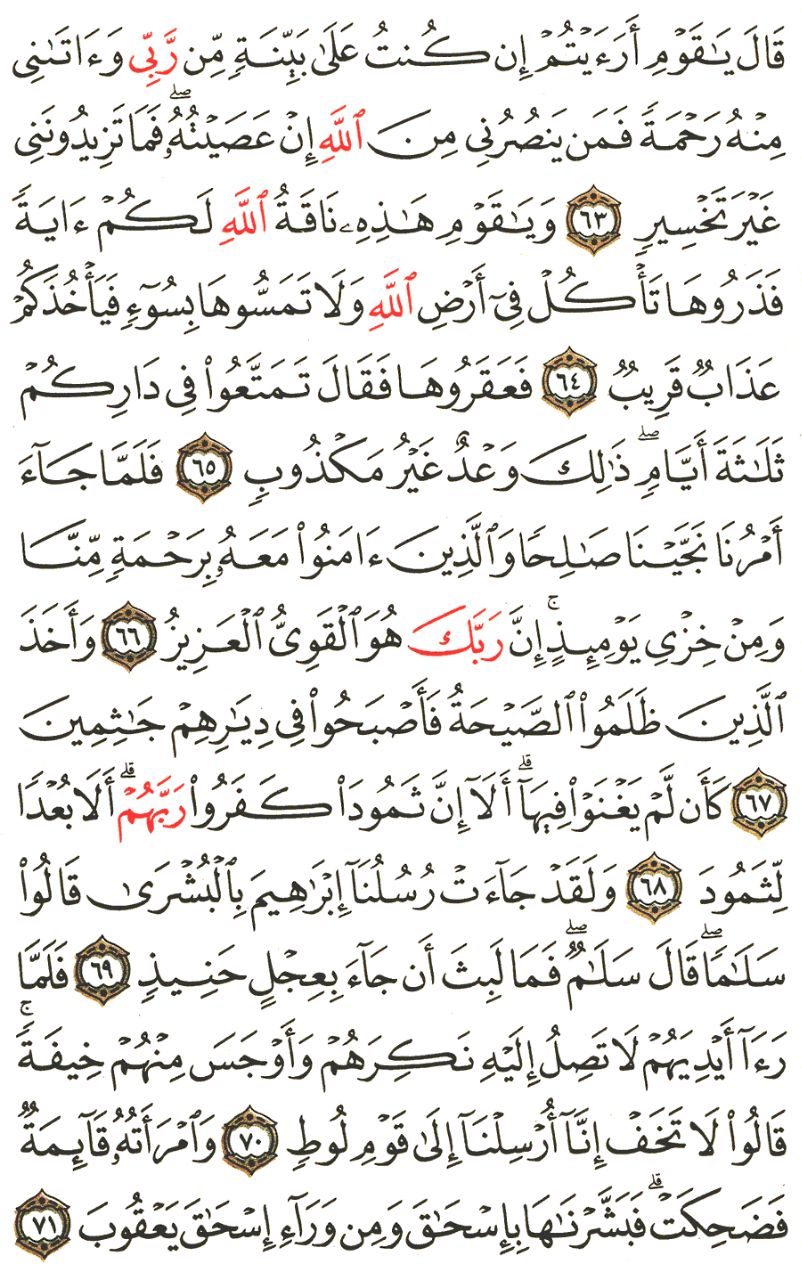 قَالَ يَٰقَوْمِ أَرَءَيْتُمْ إِن كُنتُ عَلَىٰ بَيِّنَةٍ مِّن رَّبِّى وَءَاتَىٰنِى
مِنْهُ رَحْمَةً فَمَن يَنصُرُنِى مِنَ ٱللَّهِ إِنْ عَصَيْتُهُۥ ۖ فَمَا تَزِيدُونَنِى
غَيْرَ تَخْسِيرٍ ٦٣ وَيَٰقَوْمِ هَٰذِهِۦ نَاقَةُ ٱللَّهِ لَكُمْ ءَايَةً
فَذَرُوهَا تَأْكُلْ فِىٓ أَرْضِ ٱللَّهِ وَلَا تَمَسُّوهَا بِسُوٓءٍ فَيَأْخُذَكُمْ
عَذَابٌ قَرِيبٌ ٦٤ فَعَقَرُوهَا فَقَالَ تَمَتَّعُوا۟ فِى دَارِكُمْ
ثَلَٰثَةَ أَيَّامٍ ۖ ذَٰلِكَ وَعْدٌ غَيْرُ مَكْذُوبٍ ٦٥ فَلَمَّا جَآءَ
أَمْرُنَا نَجَّيْنَا صَٰلِحًا وَٱلَّذِينَ ءَامَنُوا۟ مَعَهُۥ بِرَحْمَةٍ مِّنَّا
وَمِنْ خِزْىِ يَوْمِئِذٍ ۚ إِنَّ رَبَّكَ هُوَ ٱلْقَوِىُّ ٱلْعَزِيزُ ٦٦ وَأَخَذَ
ٱلَّذِينَ ظَلَمُوا۟ ٱلصَّيْحَةُ فَأَصْبَحُوا۟ فِى دِيَٰرِهِمْ جَٰثِمِينَ
٦٧ كَأَن لَّمْ يَغْنَوْا۟ فِيهَآ ۗ أَلَآ إِنَّ ثَمُودَا۟ كَفَرُوا۟ رَبَّهُمْ ۗ أَلَا بُعْدًا
لِّثَمُودَ ٦٨ وَلَقَدْ جَآءَتْ رُسُلُنَآ إِبْرَٰهِيمَ بِٱلْبُشْرَىٰ قَالُوا۟
سَلَٰمًا ۖ قَالَ سَلَٰمٌ ۖ فَمَا لَبِثَ أَن جَآءَ بِعِجْلٍ حَنِيذٍ ٦٩ فَلَمَّا
رَءَآ أَيْدِيَهُمْ لَا تَصِلُ إِلَيْهِ نَكِرَهُمْ وَأَوْجَسَ مِنْهُمْ خِيفَةً ۚ
قَالُوا۟ لَا تَخَفْ إِنَّآ أُرْسِلْنَآ إِلَىٰ قَوْمِ لُوطٍ ٧٠ وَٱمْرَأَتُهُۥ قَآئِمَةٌ
فَضَحِكَتْ ۗ فَبَشَّرْنَٰهَا بِإِسْحَٰقَ وَمِن وَرَآءِ إِسْحَٰقَ يَعْقُوبَ ٧١